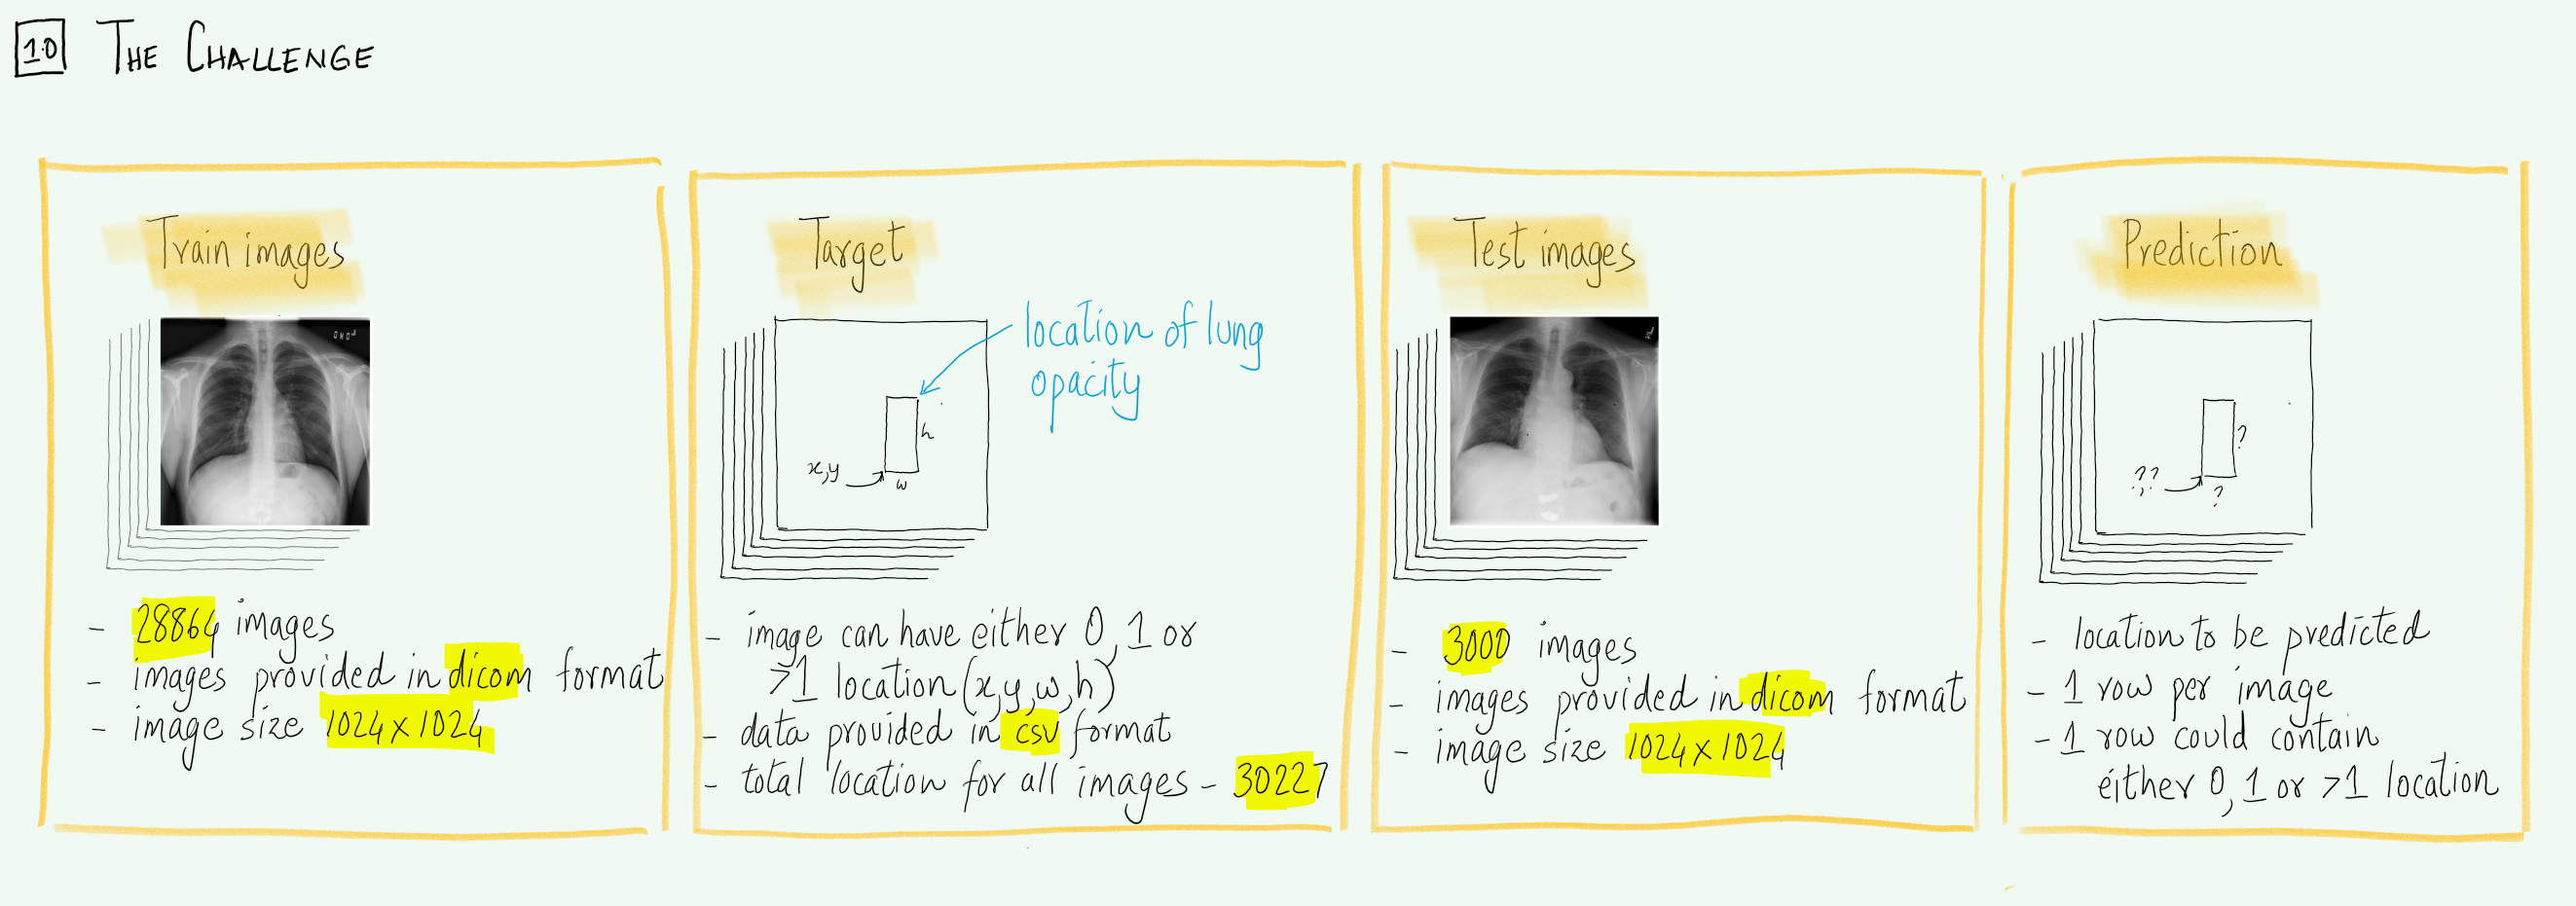 1.0 THE CHALLENGE
Train images
- 28864 images
- images provided in dicom format
- image size 1024 x 1024
Target
location of lung
opacity
h
x,y
w
- image can have either 0, 1 or
>1 location (x,y,w,h)
- data provided in csv format
- total location for all images - 30227
Test images
- 3000 images
- images provided in dicom format
- image size 1024 x 1024
Prediction
?
?,?
?
- location to be predicted
- 1 row per image
- 1 row could contain
either 0, 1 or >1 location